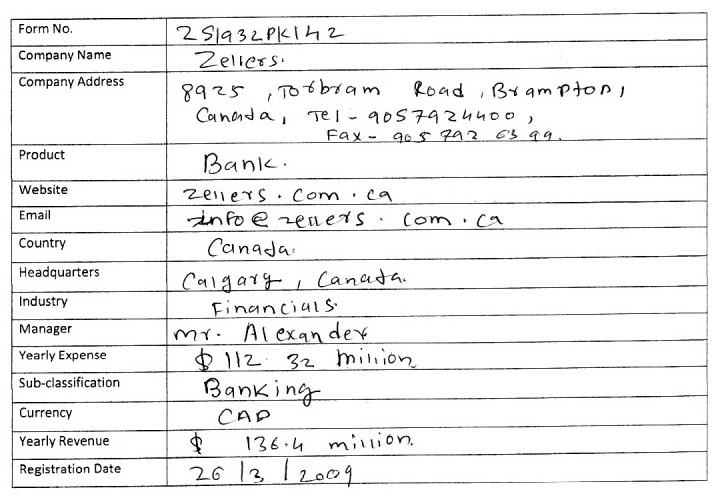 Form No. 251932PK142
Company Name Zellers.
Company Address 8925 , Torbram Road , Brampton,
Canada, Tel - 9057924400,
Fax - 905 792 6399.
Product Bank.
Website zellers.com.ca
Email info@zellers.com.ca
Country Canada.
Headquarters Calgary, Canada.
Industry Financials.
Manager Mr. Alexander
Yearly Expense $ 112.32 million
Sub-classification Banking
Currency CAD
Yearly Revenue $ 136.4 million.
Registration Date 26/3/2009